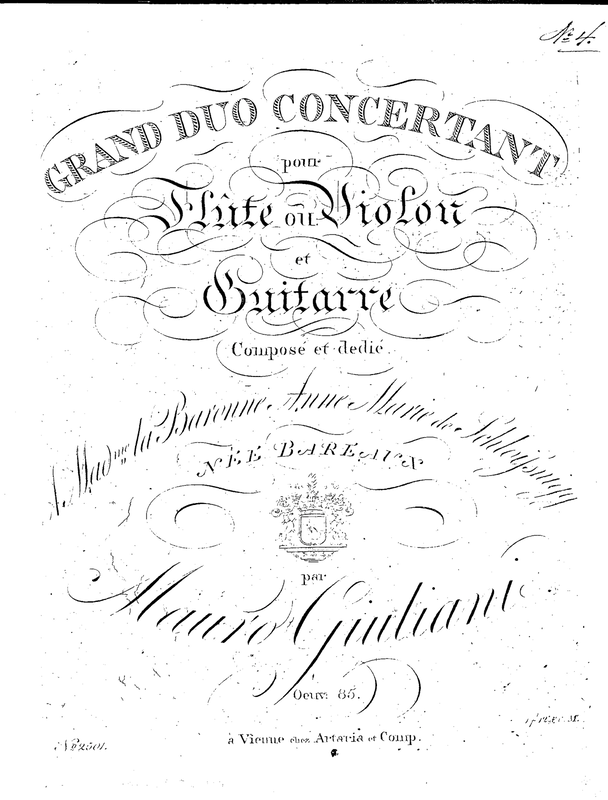 № 4.
GRAND DUO CONCERTANT
pour
Flûte ou Violon
et
Guitarre
Composé et dedié
A Madme la Baronne Anne Marie de Schloißnigg
NÉE BAREAUX
par
Mauro Giuliani
Oeuv: 85.
№ 2501.
à Vienne chez Artaria et Comp.